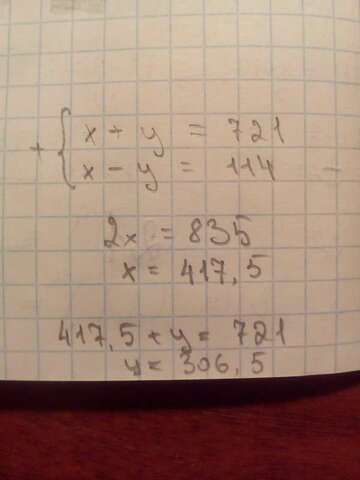 + { x + y = 721
x - y = 114 -
2x = 835
x = 417,5
417,5 + y = 721
y = 306,5